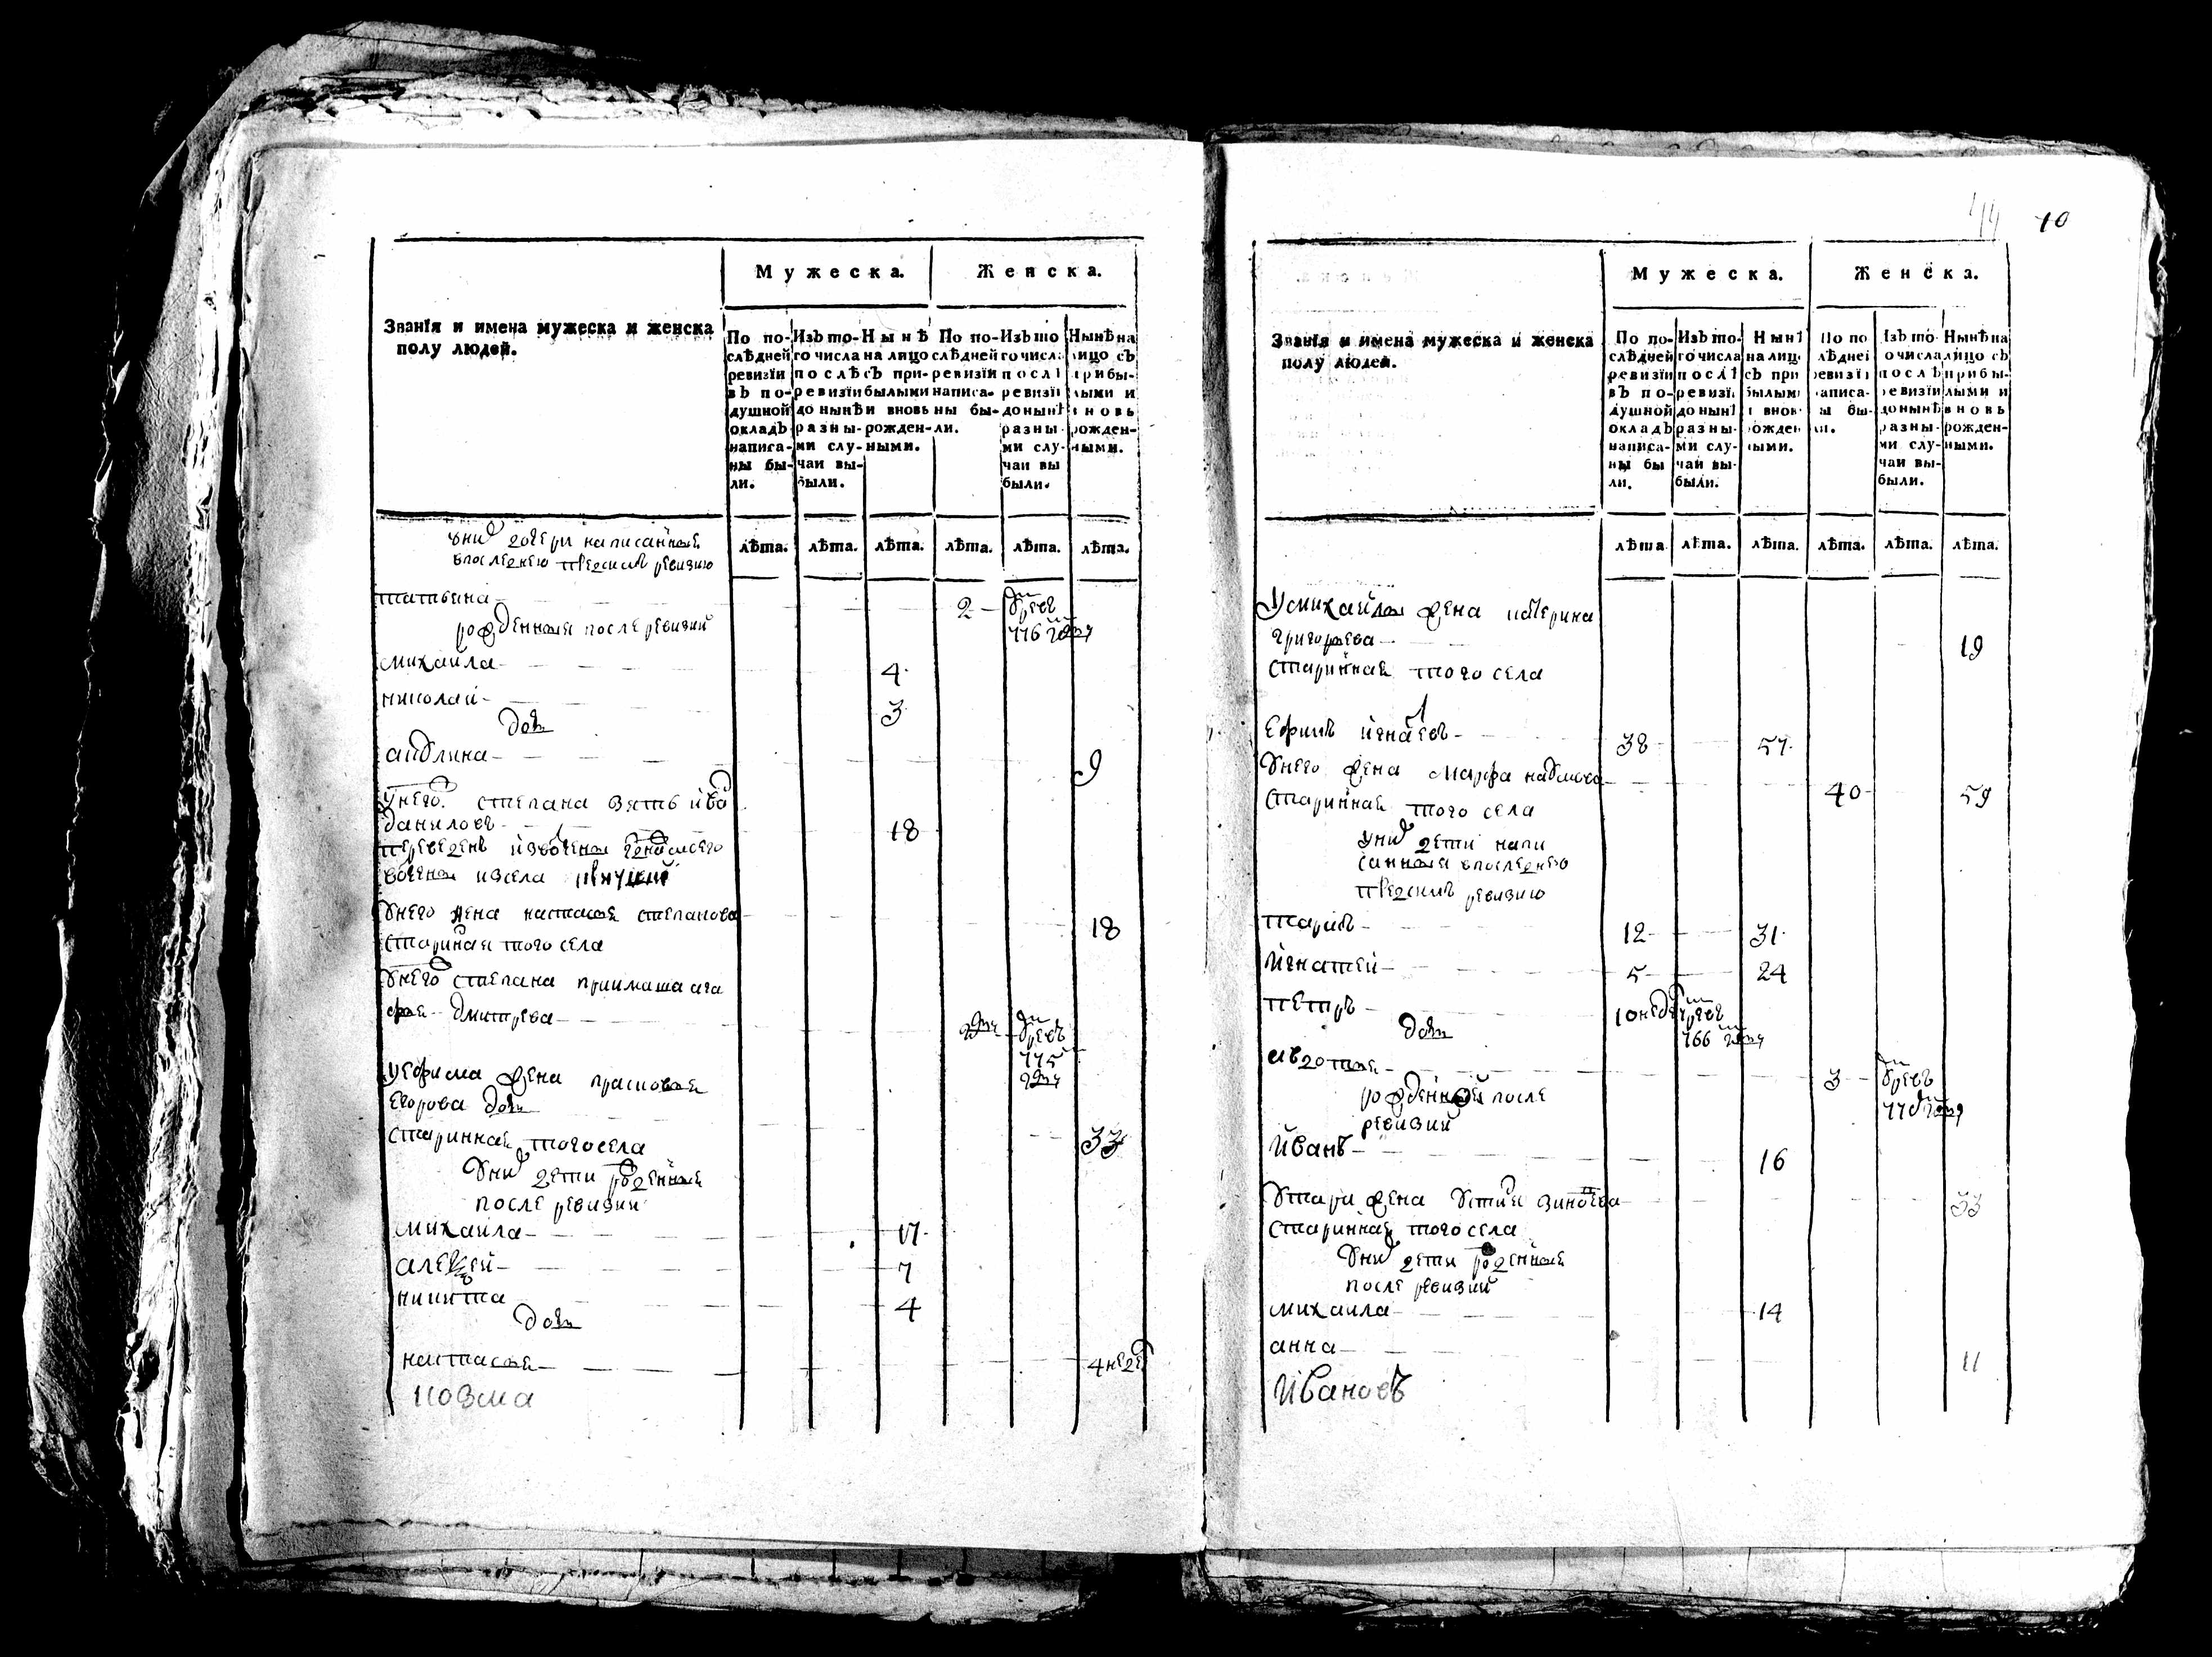 Мужеска. Женска.
Званїя и имена мужеска и женска
полу людей.
По последней ревизїи въ подушной окладъ написаны были.
Изъ того числа послѣ ревизїи до нынѣ разными случаи выбыли.
Нынѣ на лицо съ прибылыми и вновь рожденными.
По послѣдней ревизїи написаны были.
Изъ того числа послѣ ревизїи до нынѣ разными случаи выбыли.
Нынѣ на лицо съ прибылыми и вновь рожденными.
лѣта. лѣта. лѣта. лѣта. лѣта. лѣта.
уних дочери написанные
впоследнею пред сим ревизию
татьяна 2
рожденныя после ревизии
михаила 4
николай 3
дочь
акулина 9
у него степана зять иван
данилов 18
переведен из вотчины
вотчины из села
унего жена настасья степанова 18
старинная того села
унего степана приимыша ага
фья дмитрева
у ефима жена прасковья
егорова дочь 33
старинная того села
уних дети рожденныя
после ревизии
михаила 17
алексей 7
никита 4
дочь
настасья 4 недел
козма
10
Мужеска. Женска.
Званїя и имена мужеска и женска
полу людей.
По послѣдней ревизїи въ подушной окладъ написаны были.
Изъ того числа послѣ ревизїи до нынѣ разными случаи выбыли.
Нынѣ на лицо съ прибылыми и вновь рожденными.
По послѣдней ревизїи написаны были.
Изъ того числа послѣ ревизїи до нынѣ разными случаи выбыли.
Нынѣ на лицо съ прибылыми и вновь рожденными.
лѣта лѣта. лѣта. лѣта. лѣта. лѣта.
У михайлы жена катерина
григорьева 19
старинная того села
Ефимъ игнатьев 38 57
унего жена марфа наумова 40 59
старинная того села
уних дети напи
санныя впоследнею
пред симъ ревизию
тарасъ 12 31
игнатей 5 24
петръ 10 недел
дочь
авдотья 3
рожденной после
ревизии
иванъ 16
у тараса жена устинья зиновьева 33
старинная того села
уних дети рожденныя
после ревизии
михаила 14
анна 11
ивановъ